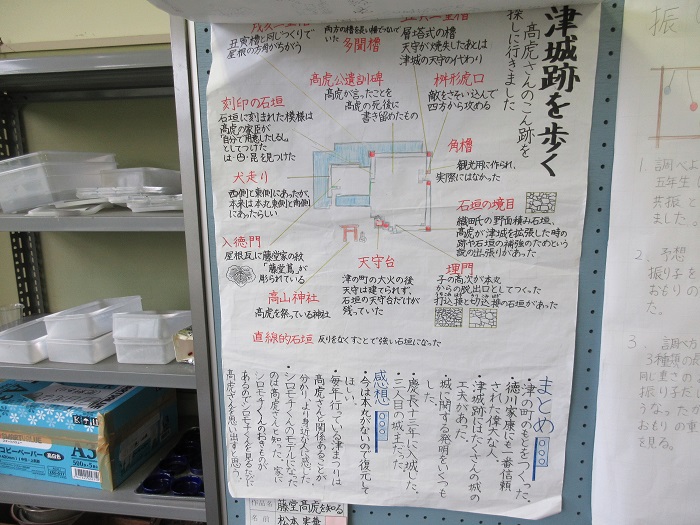 津城跡を歩く
高虎さんのこん跡を
探しに行きました
丑寅櫓と同じつくりで
屋根の方角がちがう
両方の櫓を長い櫓でつないで
いた
多聞櫓
層塔式の櫓
天守が焼失したあとは
津城の天守の代わり
高虎公遺訓碑
高虎が言ったことを
高虎の死後に
書き留めたもの
枡形虎口
敵をさそい込んで
四方から攻める
刻印の石垣
石垣に刻まれた模様は
高虎の家臣が
「自分で用意したしるし」
としてつけた
を見つけた
角櫓
観光用に作られ、
実際にはなかった
犬走り
西側と東側にあったが、
本来は本丸東側と南側
にあったらしい
石垣の境目
織田氏の野面積み石垣、
高虎が津城を拡張した時の
跡や石垣の補強のためという
説の出張りがあった
入徳門
屋根瓦に藤堂家の紋
「藤堂蔦」が
彫られている
天守台
津の町の大火の後
天守は建てられず、
石垣の天守台だけが
残っていた
埋門
子の高次が本丸
からの脱出口としてつくった
打込接と切込接の石垣があった
高山神社
高虎を祭っている神社
直線的石垣 反りをなくすことで強い石垣になった
まとめ
・津の町のもとをつくった、
徳川家康にも一番信頼
された偉大な人。
・津城跡にはたくさんの城の
工夫があった。
・城に関する発明をいくつも
した。
・慶長十三年に入城した、
三人目の城主だった。
感想
・今は本丸がないので復元して
ほしい。
・毎年行っている津まつりは
高虎さんと関係あることが
分かり、より身近な人に感じた。
・シロモチくんのモデルになった
のは高虎さんと知った。家に
シロモチくんのおきものが
あるのでシロモチくんを見るたびに
高虎さんを思い出すと思う。
作品名 藤堂高虎を知る
名前
コピーペーパー
A3
500枚
振
1. 調べよ
五年生
共振と
ました。
2. 予想
振り子を
おもりの
た。
3. 調べ方
3種類の長
同じ重さの
振り子だし
うなった
おもりの重
を見る。